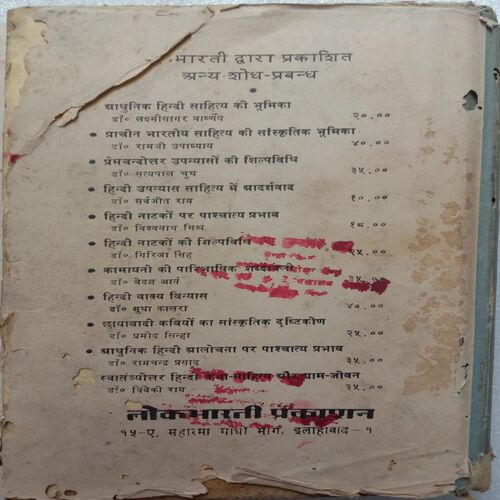 भारती द्वारा प्रकाशित
अन्य शोध-प्रबन्ध
आधुनिक हिन्दी साहित्य की भूमिका
डॉ० लक्ष्मीसागर वार्ष्णेय २०.००
● प्राचीन भारतीय साहित्य की सांस्कृतिक भूमिका
डॉ० रामजी उपाध्याय ४०.००
● प्रेमचन्दोत्तर उपन्यासों की शिल्पविधि
डॉ० सत्यपाल चुघ ३५.००
● हिन्दी उपन्यास साहित्य में आदर्शवाद
डॉ० सर्वजीत राय १०.००
● हिन्दी नाटकों पर पाश्चात्य प्रभाव
डॉ० विश्वनाथ मिश्र १८.००
● हिन्दी नाटकों की शिल्पविधि
डॉ० गिरिजा सिंह २५.००
● कामायनी की पारिभाषिक शब्दावली
डॉ० वेदज्ञ आर्य ३५.००
● हिन्दी वाक्य विन्यास
डॉ० सुधा कालरा ४०.००
● छायावादी कवियों का सांस्कृतिक दृष्टिकोण
डॉ० प्रमोद सिन्हा २५.००
● आधुनिक हिन्दी आलोचना पर पाश्चात्य प्रभाव
डॉ० रामचन्द्र प्रसाद ३५.००
● स्वातंत्र्योत्तर हिन्दी कथा-साहित्य और ग्राम-जीवन
डॉ० विवेकी राय ३५.००
लोकभारती प्रकाशन
१५-ए, महात्मा गांधी मार्ग, इलाहाबाद - १